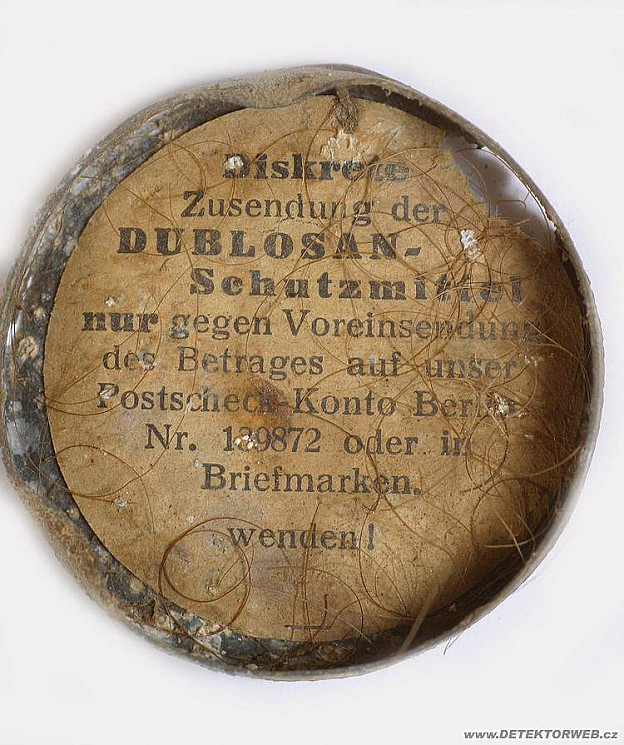 Diskrete
Zusendung der
DUBLOSAN-
Schutzmittel
nur gegen Voreinsendung
des Betrages auf unser
Postscheck-Konto Berlin
Nr. 139872 oder in
Briefmarken.
wenden!
www.DETEKTORWEB.cz